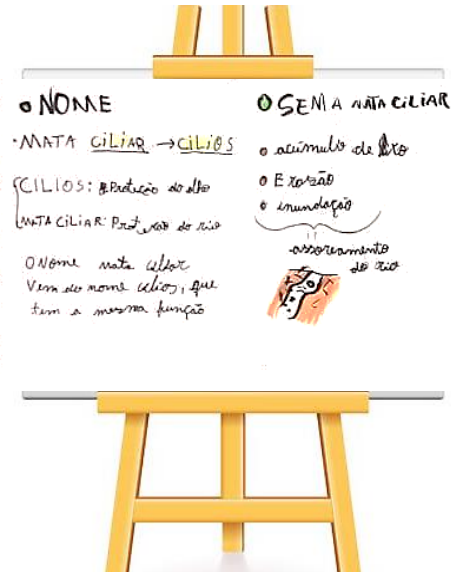 NOME
MATA CILIAR → CILIOS
CILIOS: Proteção do olho
MATA CILIAR: Proteção do rio
O Nome mata ciliar
Vem do nome cilios, que
tem a mesma função
SEM A MATA CILIAR
acúmulo de lixo
Erosão
inundação
assoreamento
do rio